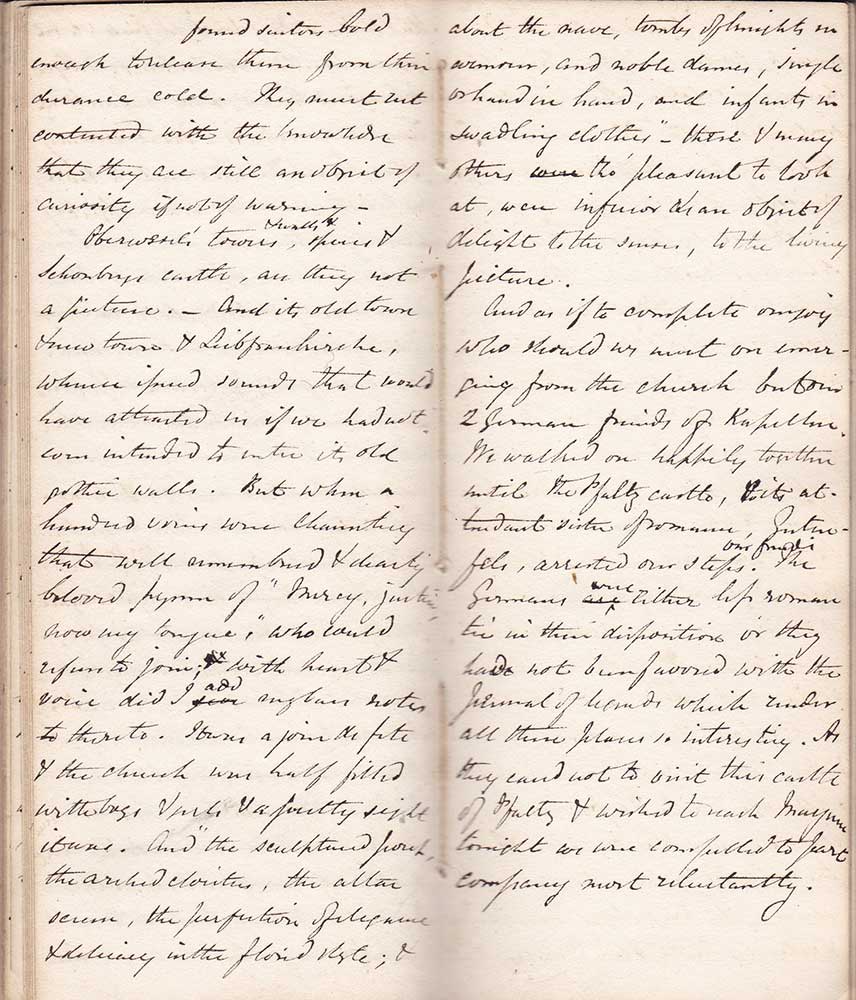 found suitors bold
enough to release them from their
durance cold. They must rest
contented with the knowledge
that they are still an object of
curiosity if not of warning —
Oberwesel's towers, walls & spires &
Schonburgs castle, are they not
a picture. — And its old town
& new town & Liebfraukirche,
whence issued sounds that would
have attracted us if we had not
even intended to enter its old
gothic walls. But when a
hundred voices were chaunting
that well remembered & dearly
beloved hymn of "Mercy, justice,
now my tongue," who could
refuse to join; with heart &
voice did I add my bass notes
thereto. It was a jour de fete
& the church was half filled
with boys & girls & a pretty sight
it was. And "the sculptured
the arched cloister, the altar
screen, the perfection of elegance
& delicacy in the florid style; &
about the nave, tombs of knights in
armour, and noble dames, single
or hand in hand, and infants in
swadling clothes" — these & many
others tho' pleasant to look
at, were inferior as an object of
delight to the senses, to the living
picture.
And as if to complete our joy
who should we meet on emer-
ging from the church but our
2 German friends of Kapellen.
We walked on happily together
until the Pfaltz castle, & its at-
tendant sister of romance, Guten-
fels, arrested our steps. The our friends
Germans were either less roman
tic in their disposition or they
had not been favored with the
journal of legends which render
all these places so interesting. As
they cared not to visit this castle
of Pfaltz & wished to reach Mayence
tonight we were compelled to part
company most reluctantly.